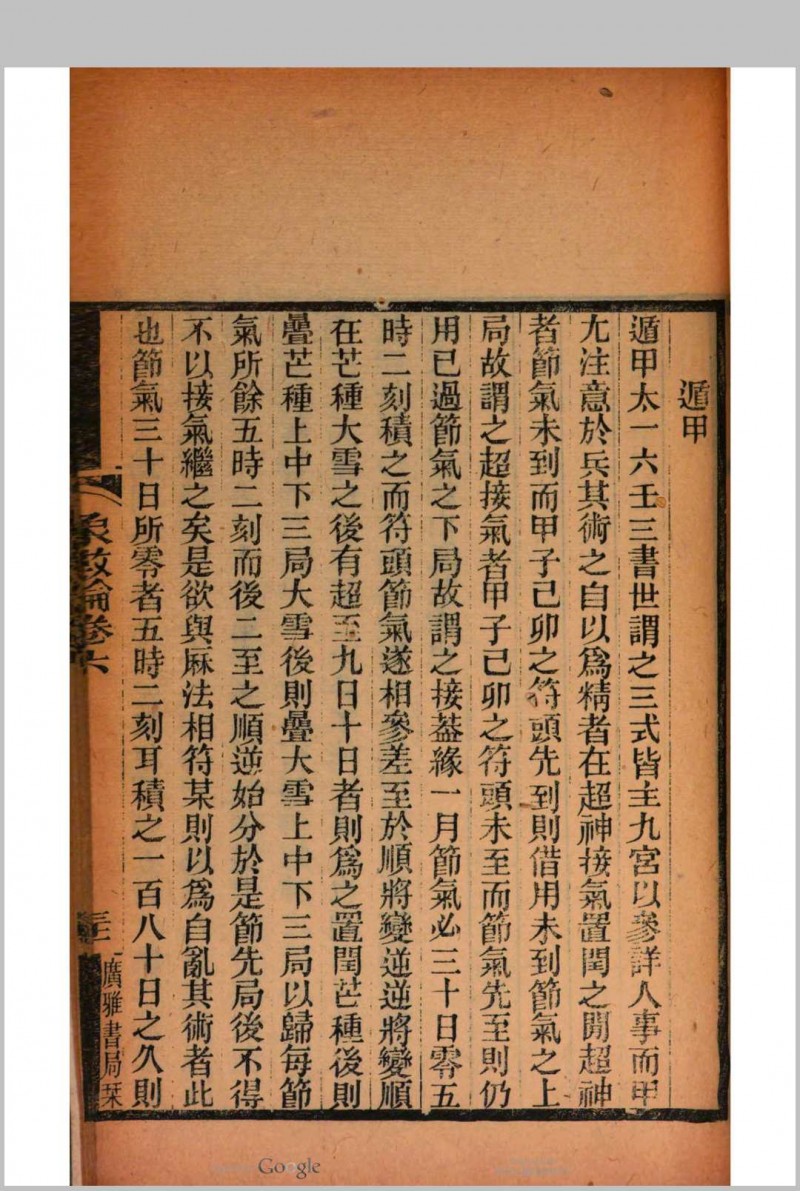 遁甲
遁甲太一六壬三書世謂之三式皆主九宮以參詳人事而甲
尢注意於兵其術之自以爲精者在超神接氣置閏之閒超神
者節氣未到而甲子己卯之符頭先到則借用未到節氣之上
局故謂之超接氣者甲子己卯之符頭未至而節氣先至則仍
用已過節氣之下局故謂之接葢緣一月節氣必三十日零五
時二刻積之而符頭節氣遂相參差至於順將變逆逆將變順
在芒種大雪之後有超至九日十日者則爲之置閏芒種後則
疊芒種上中下三局大雪後則疊大雪上中下三局以歸每節
氣所餘五時二刻而後二至之順逆始分於是節先局後不得
不以接氣繼之矣是欲與厤法相符某則以爲自亂其術者此
也節氣三十日所零者五時二刻耳積之一百八十日之久則
象數論卷六
三
廣雅書局栞
Google